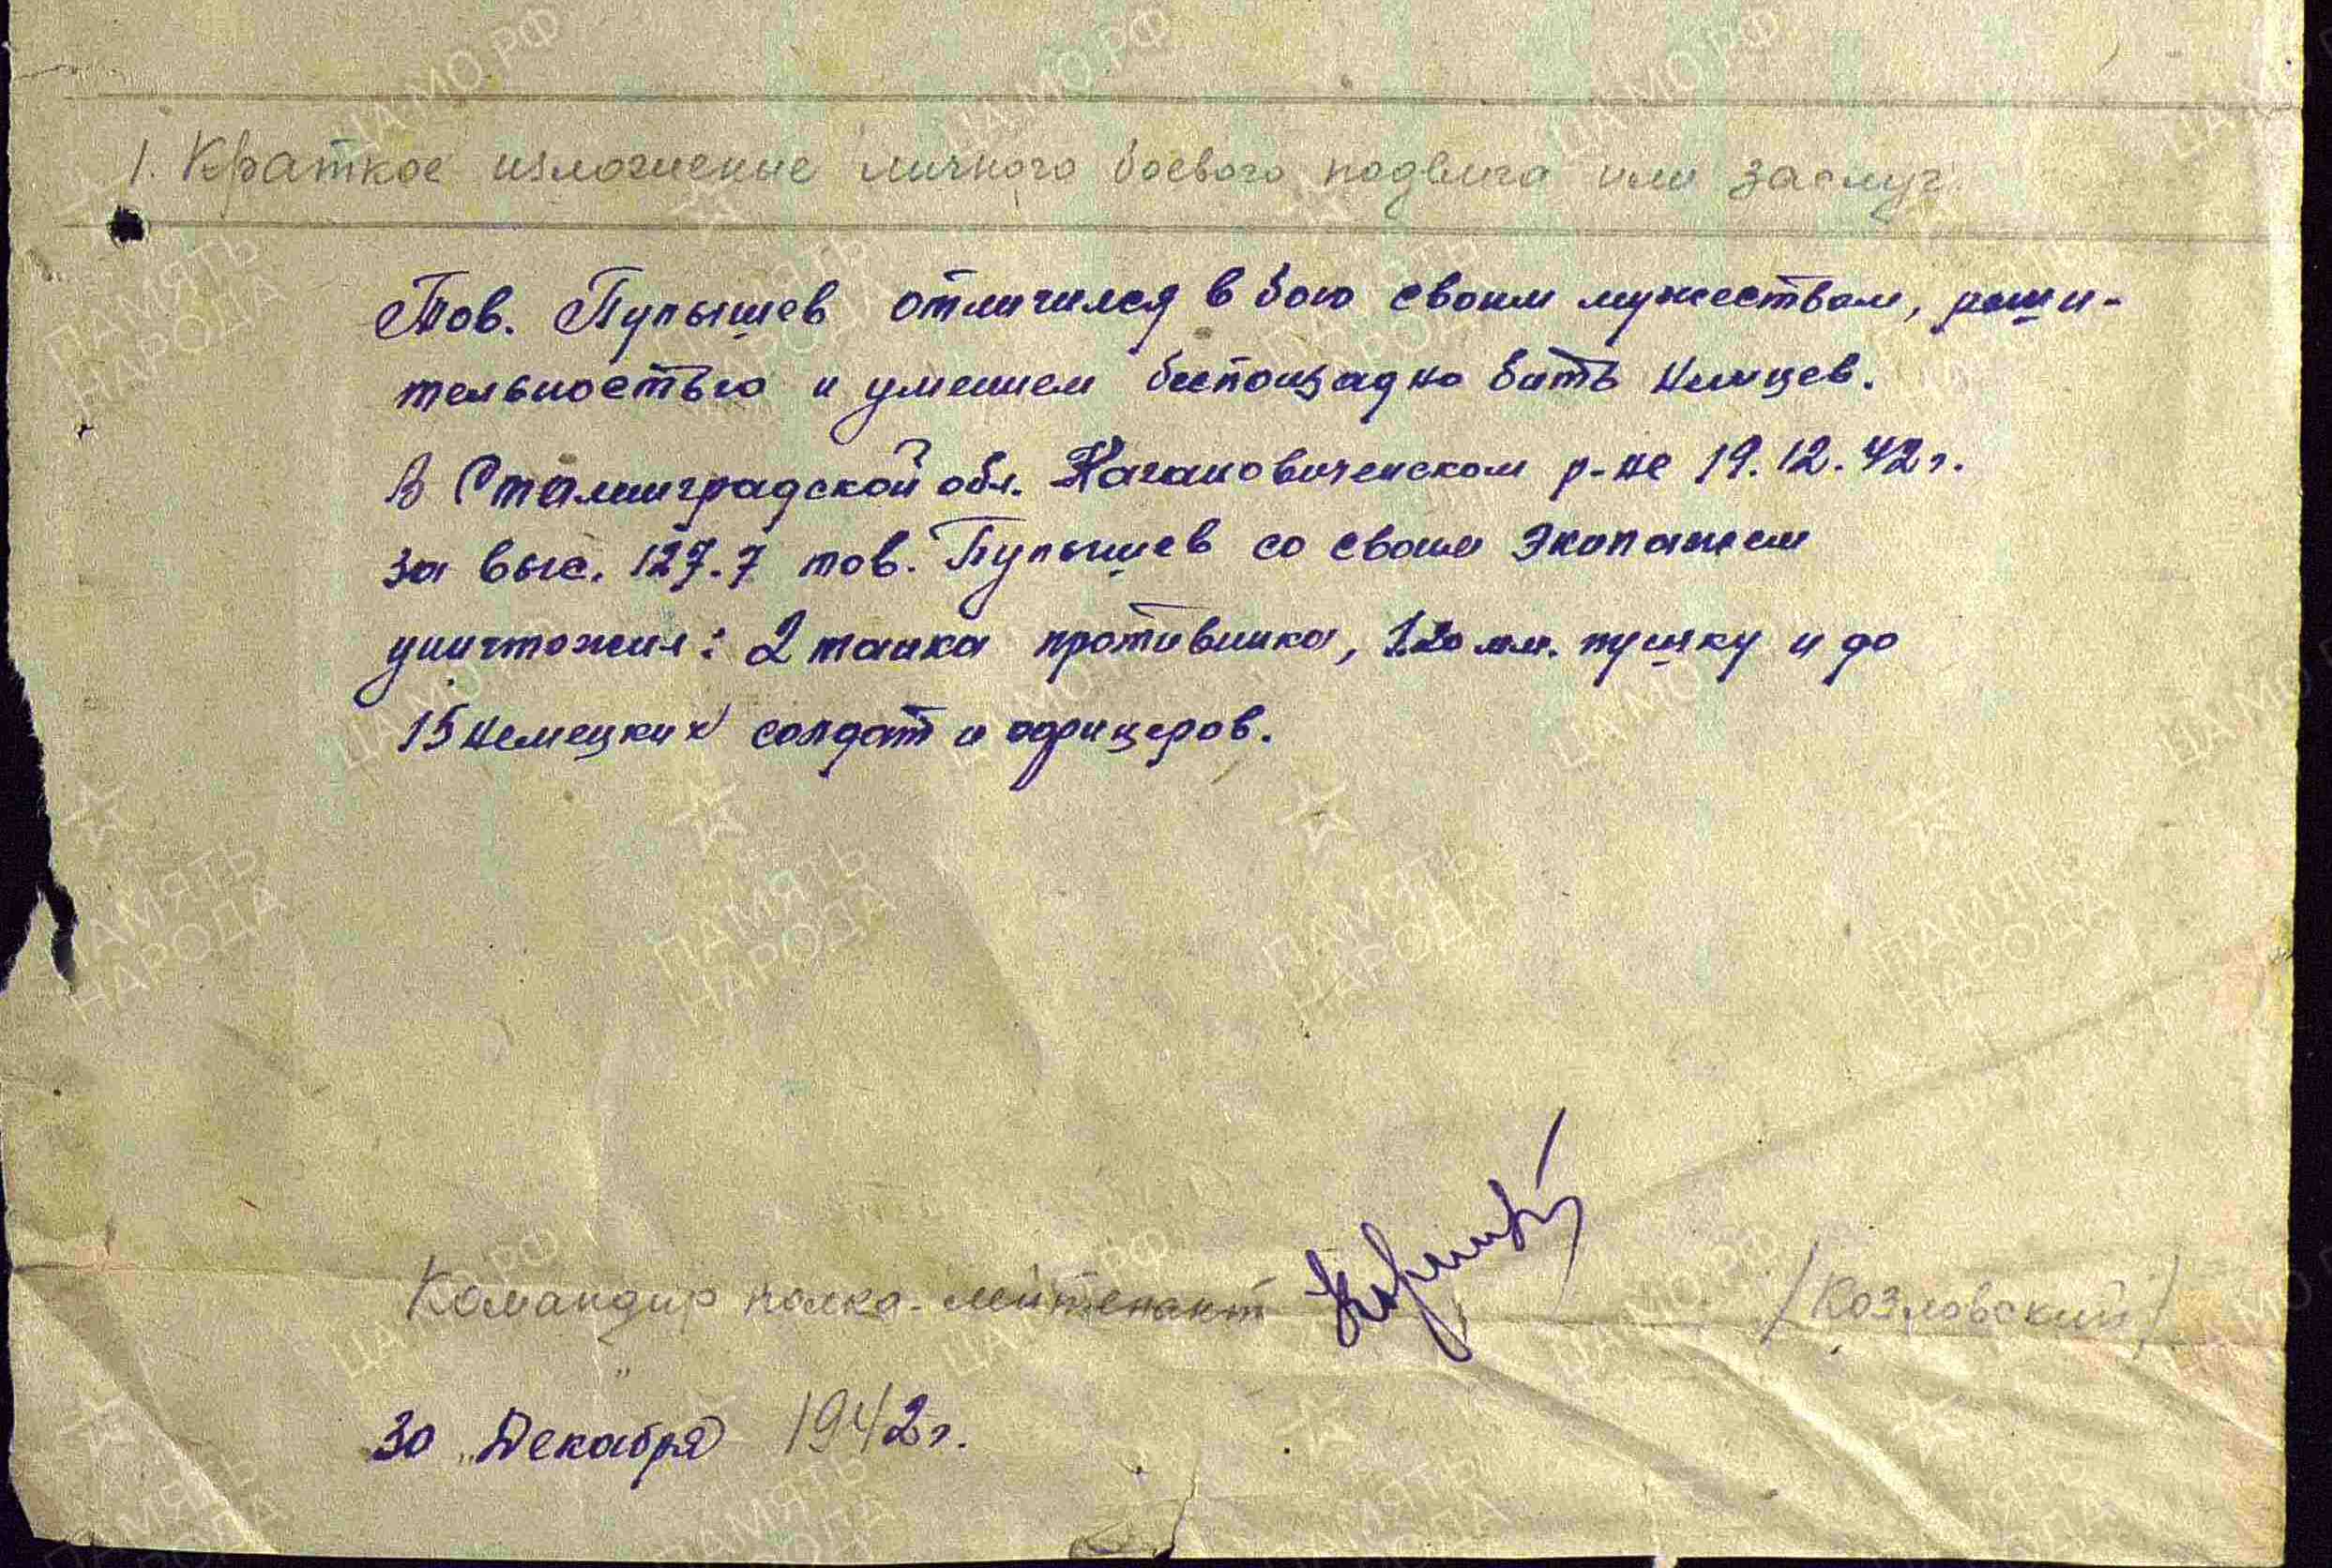 1. Краткое изложение личного боевого подвига или заслуг
Тов. Пупышев отличился в бою своим мужеством, реши-
тельностью и умением беспощадно бить немцев.
В Сталинградской обл. Кагановиченском р-не 19.12.42 г.
за выс. 127.7 тов. Пупышев со своим экипажем
уничтожил: 2 танка противника, 120 мм. пушку и до
15 немецких солдат и офицеров.
Командир полка - лейтенант /Козловский/
30 „ Декабря 1942 г.
ЦАМО.РФ
ПАМЯТЬ
НАРОДА